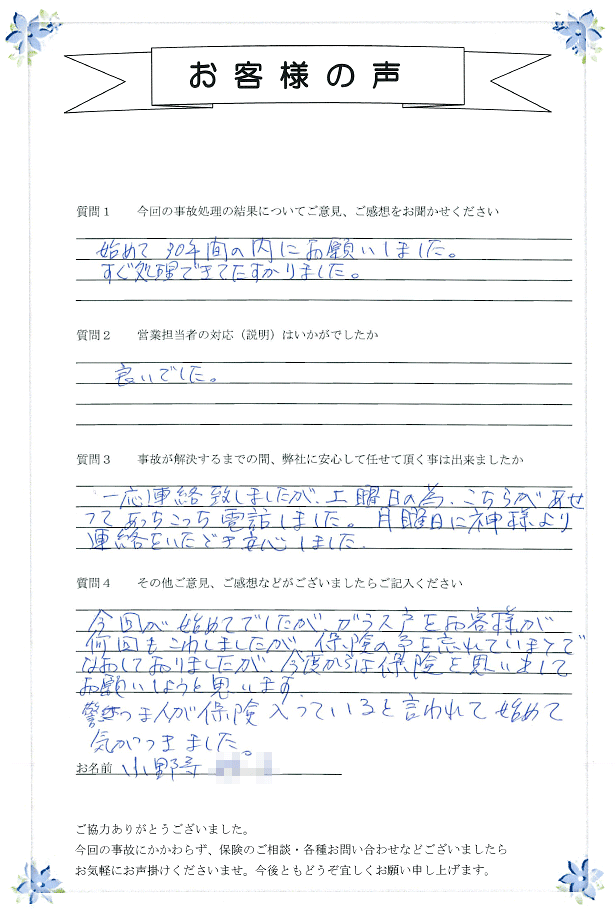 お客様の声
質問1 今回の事故処理の結果についてご意見、ご感想をお聞かせください
始めて30年間の内にお願いしました。
すぐ処理できてたすかりました。
質問2 営業担当者の対応(説明)はいかがでしたか
良いでした。
質問3 事故が解決するまでの間、弊社に安心して任せて頂く事は出来ましたか
一応連絡致しましたが、土曜日の為、こちらがあせ
ってあっちこっち電話しました。月曜日に神様より
連絡をいただき安心しました。
質問4 その他ご意見、ご感想などがございましたらご記入ください
今回が始めてでしたが、ガラス戸をお客様が
何回もこわしましたが、保険の事を忘れていまして
なおしておりましたが、今度からは保険を思い出して
お願いしようと思います。
人が保険入っていると言われて始めて
気がつきました。
お名前 小野寺
ご協力ありがとうございました。
今回の事故にかかわらず、保険のご相談・各種お問い合わせなどございましたら
お気軽にお声掛けくださいませ。今後ともどうぞ宜しくお願い申し上げます。